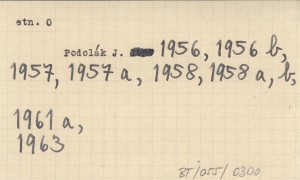 etn. 0
Podolák J. 1956, 1956 b,
1957, 1957 a, 1958, 1958 a, b,
1961 a,
1963
BT/055/0300